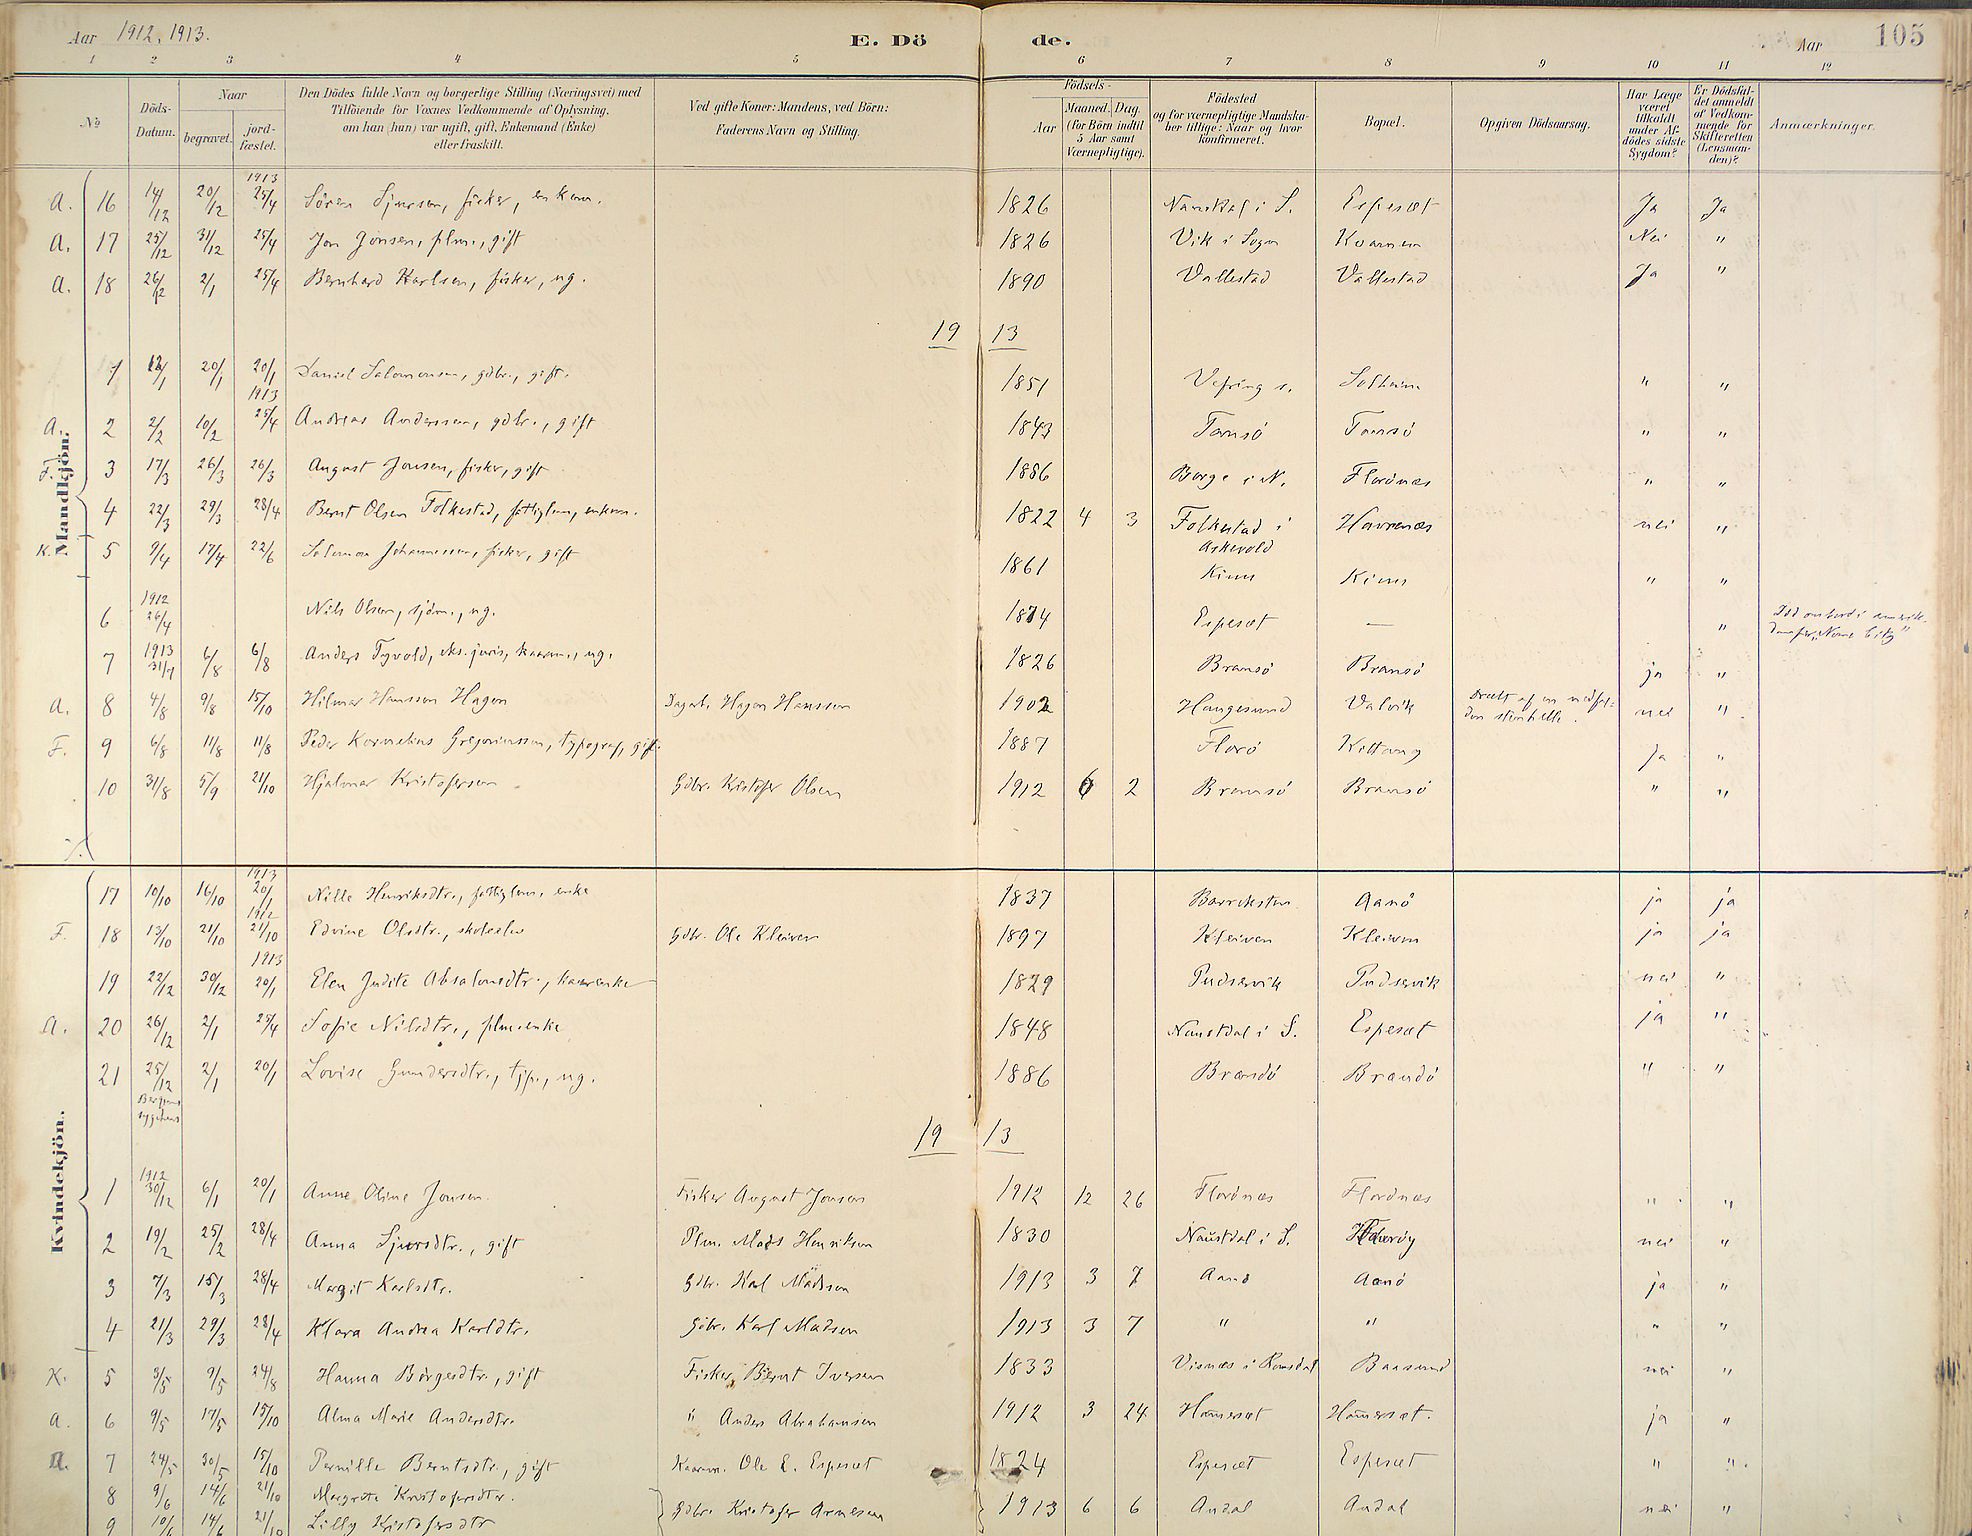 Aar 1912, 1913. E. Dö de. Aar 105
1 2 3 4 5 6 7 8 9 10 11 12
No Döds-Datum. Naar begravet. jord-fæstet. Den Dödes fulde Navn og borgerlige Stilling (Næringsvei) med Tilföiende for Voxnes Vedkommende af Oplysning, om han (hun) var ugift, gift, Enkemand (Enke) eller fraskilt. Ved gifte Koner: Mandens, ved Börn: Faderens Navn og Stilling. Födsels- Aar Maaned. Dag. (for Börn indtil 5 Aar samt Værnepligtige). Födested og for værnepligtige Mandska-ber tillige: Naar og hvor konfirmeret. Bopæl. Opgiven Dödsaarsag. Har Læge været tilkaldt under Af-dödes sidste Sygdom? Er Dödsfal-det anmeldt af Vedkom-mende for Skifteretten (Lensman-den)? Anmærkninger.
Mandkjön.
1913
A. 16 14/12 20/12 25/4 Sören Sjursen, fisker, enkem. 1826 i S. Espeset Ja Ja
A. 17 25/12 31/12 25/4 Jon Jonsen, plm., gift 1826 Vik i Sogn Kvarnen Nei "
A. 18 26/12 2/1 25/4 Bernhard Karlsen, fisker, ug. 1890 Vallestad Vallestad Ja "
19 13
1 /1 20/1 20/1 Daniel Salomonsen, gdbr., gift. 1851 Vefring s. Solheim " "
1913
A. 2 2/2 10/2 25/4 Andreas Anderssen, gdbr., gift 1843 Tansö Tansö " "
F. 3 17/3 26/3 26/3 August Jonsen, fisker, gift 1886 Borge i N. Florönæs " "
4 22/3 29/3 28/4 Bernt Olsen Folkestad, fattiglem, enkem. 1822 4 3 Folkestad i Askevold Havrenæs nei "
K. 5 9/4 17/4 22/6 Salomon Johannessen, fisker, gift 1861 Kinn Kinn " "
1912
6 26/4 Nils Olsen, sjöm., ug. 1874 Espeset — " Död ombord i
"Nome City"
1913
7 31/7 6/8 6/8 Anders Tyvold, eks. juris, kaarm., ug. 1826 Bransö Bransö ja "
A. 8 4/8 9/8 15/10 Hilmar Hansson Hagen Dagarb. Hagen Hansson 1902 Haugesund Valvik Dræbt af en nedfal-
den stenhelle. nei "
F. 9 6/8 11/8 11/8 Peder Kornelius Gregoriussen, typograf, gift. 1887 Florö Kittang Ja "
10 31/8 5/9 21/10 Hjalmar Kristofersen Gdbr. Kristofer Olsen 1912 6 2 Bransö Bransö " "
Kvindekjön.
1913
17 10/10 16/10 20/1 Nille Henriksdtr., fattiglem, enke 1837 Barreksten Aanö ja ja
1912
F. 18 13/10 21/10 21/10 Edvine Olsdtr., skoleelev Gdbr. Ole Kleiven 1897 Kleiven Kleiven ja ja
1913
19 22/12 30/12 20/1 Elen Judite Absalonsdtr., kaarenke 1829 Pudservik Pudservik nei "
A. 20 26/12 2/1 25/4 Sofie Nilsdtr., plm.enke 1848 Naustdal i S. Espeset ja "
21 25/12 2/1 20/1 Lovise Gundersdtr., tjp., ug. 1886 Brandö Brandö " "
Bergens
sygehus
19 13
1912
1 30/12 6/1 20/1 Anne Oline Jonsen Fisker August Jonsen 1912 12 26 Florönæs Florönæs " "
2 19/2 25/2 28/4 Anna Sjursdtr., gift Plm. Mads Henriksen 1830 Naustdal i S. nei "
3 7/3 15/3 28/4 Margit Karlsdtr. Gdbr. Karl Madsson 1913 3 7 Aanö Aanö ja "
4 21/3 29/3 28/4 Klara Andrea Karldtr. Gdbr. Karl Madsen 1913 3 7 " " " "
K. 5 3/5 9/5 24/8 Hanna Börgesdtr., gift Fisker Bernt Iversen 1833 Visnæs i Romsdal Baasund nei "
A. 6 9/5 17/5 15/10 Alma Marie Andersdtr. " Anders Abrahamsen 1912 3 24 Hammerset Hammerset. ja "
A. 7 24/5 30/5 15/10 Pernille Berntsdtr., gift Kaarm. Ole E. Espeset 1824 Espeset Espeset " "
8 9/6 14/6 21/10 Margrete Kristofersdtr. Gdbr. Kristofer Arnesen 1913 6 6 Andal Andal nei "
9 10/6 14/6 21/10 Lilly Kristofersdtr